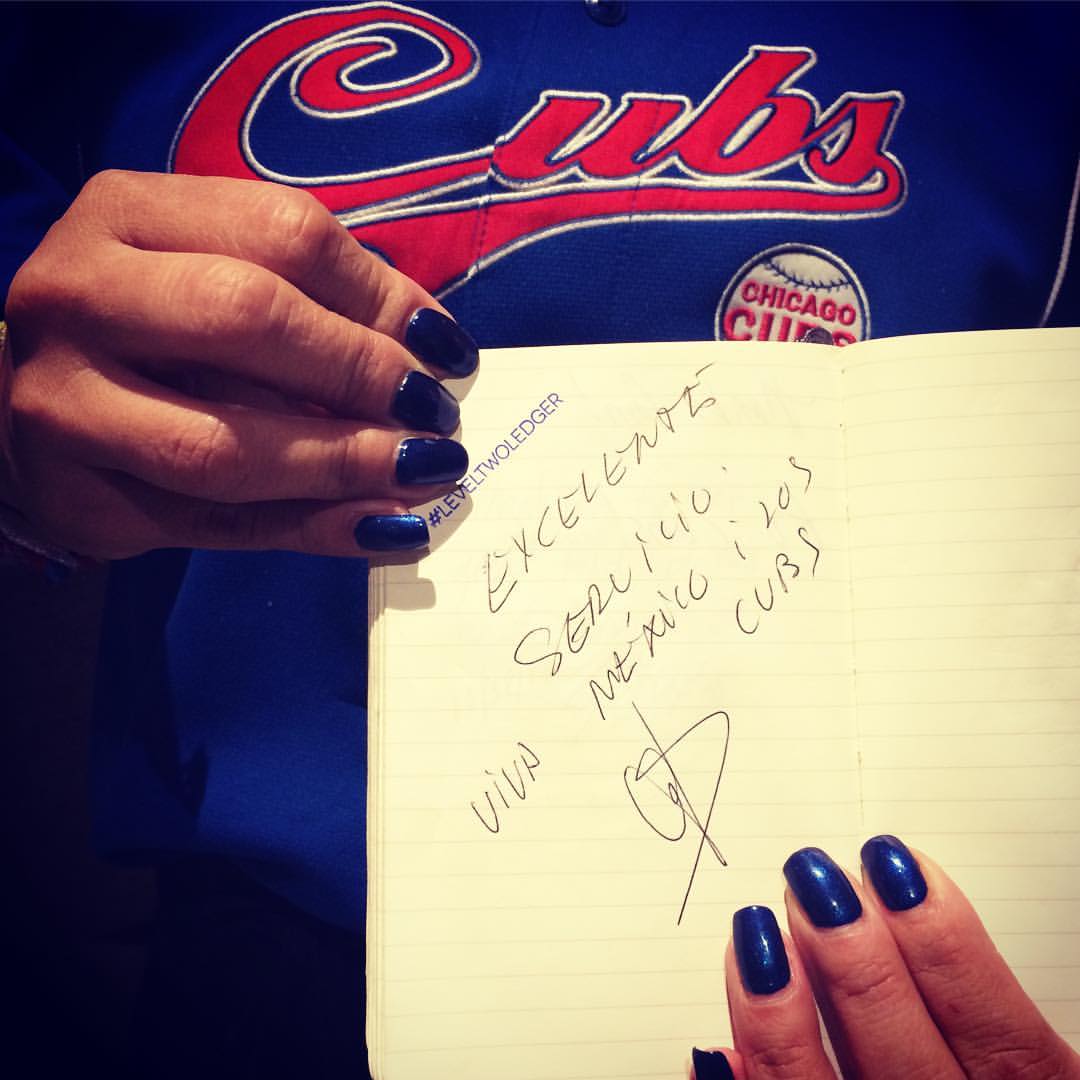 Cubs
CHICAGO
CUBS
#LEVELTWOLEDGER
EXCELENTE
SERVICIO
VIVA MÉXICO i LOS
CUBS